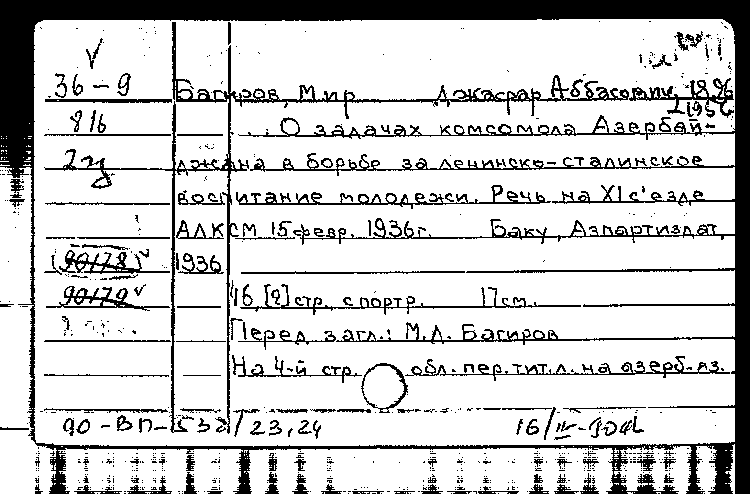 V
36-9 Багиров, Мир Джафар Аббасович, 1896
816 ⊥1956
... О задачах комсомола Азербай-
2 джана в борьбе за ленинско-сталинское
воспитание молодежи. Речь на XI с'езде
АЛКСМ 15 февр. 1936г. Баку, Азпартиздат,
(90178) 1936
90179 16, [2] стр. с портр. 17см.
Перед загл.: М.Д. Багиров
На 4-й стр. обл. пер. тит. л. на азерб. яз.
90-ВП-532/23,24 16/IV-90